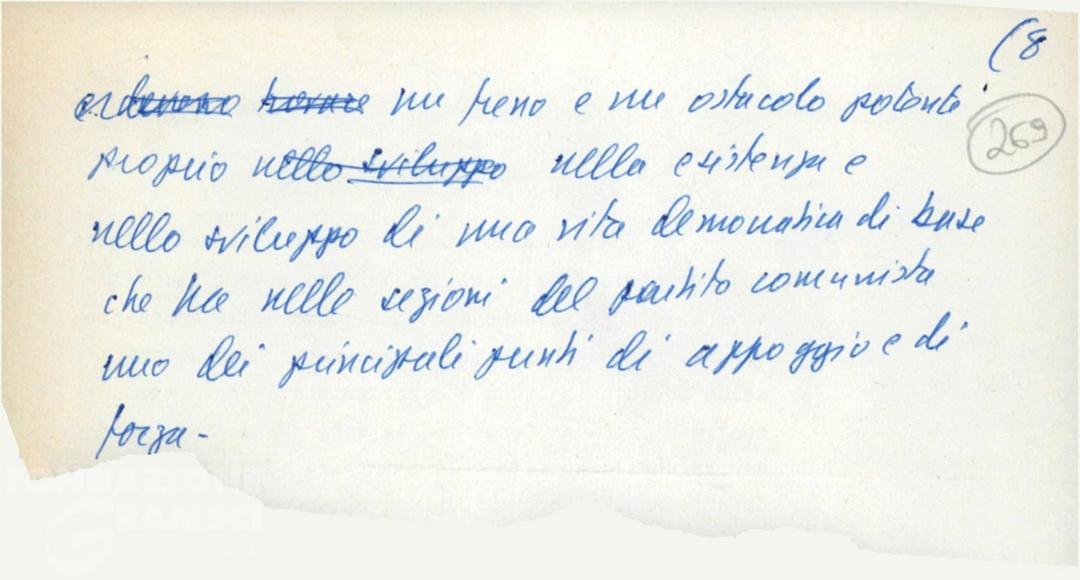 (8
un freno e un ostacolo potente
269
proprio nello sviluppo nella esistenza e
nello sviluppo di una vita democratica di base
che ha nelle sezioni del partito comunista
uno dei principali punti di appoggio e di
forza -
FONDAZIONE
GRAMSCI